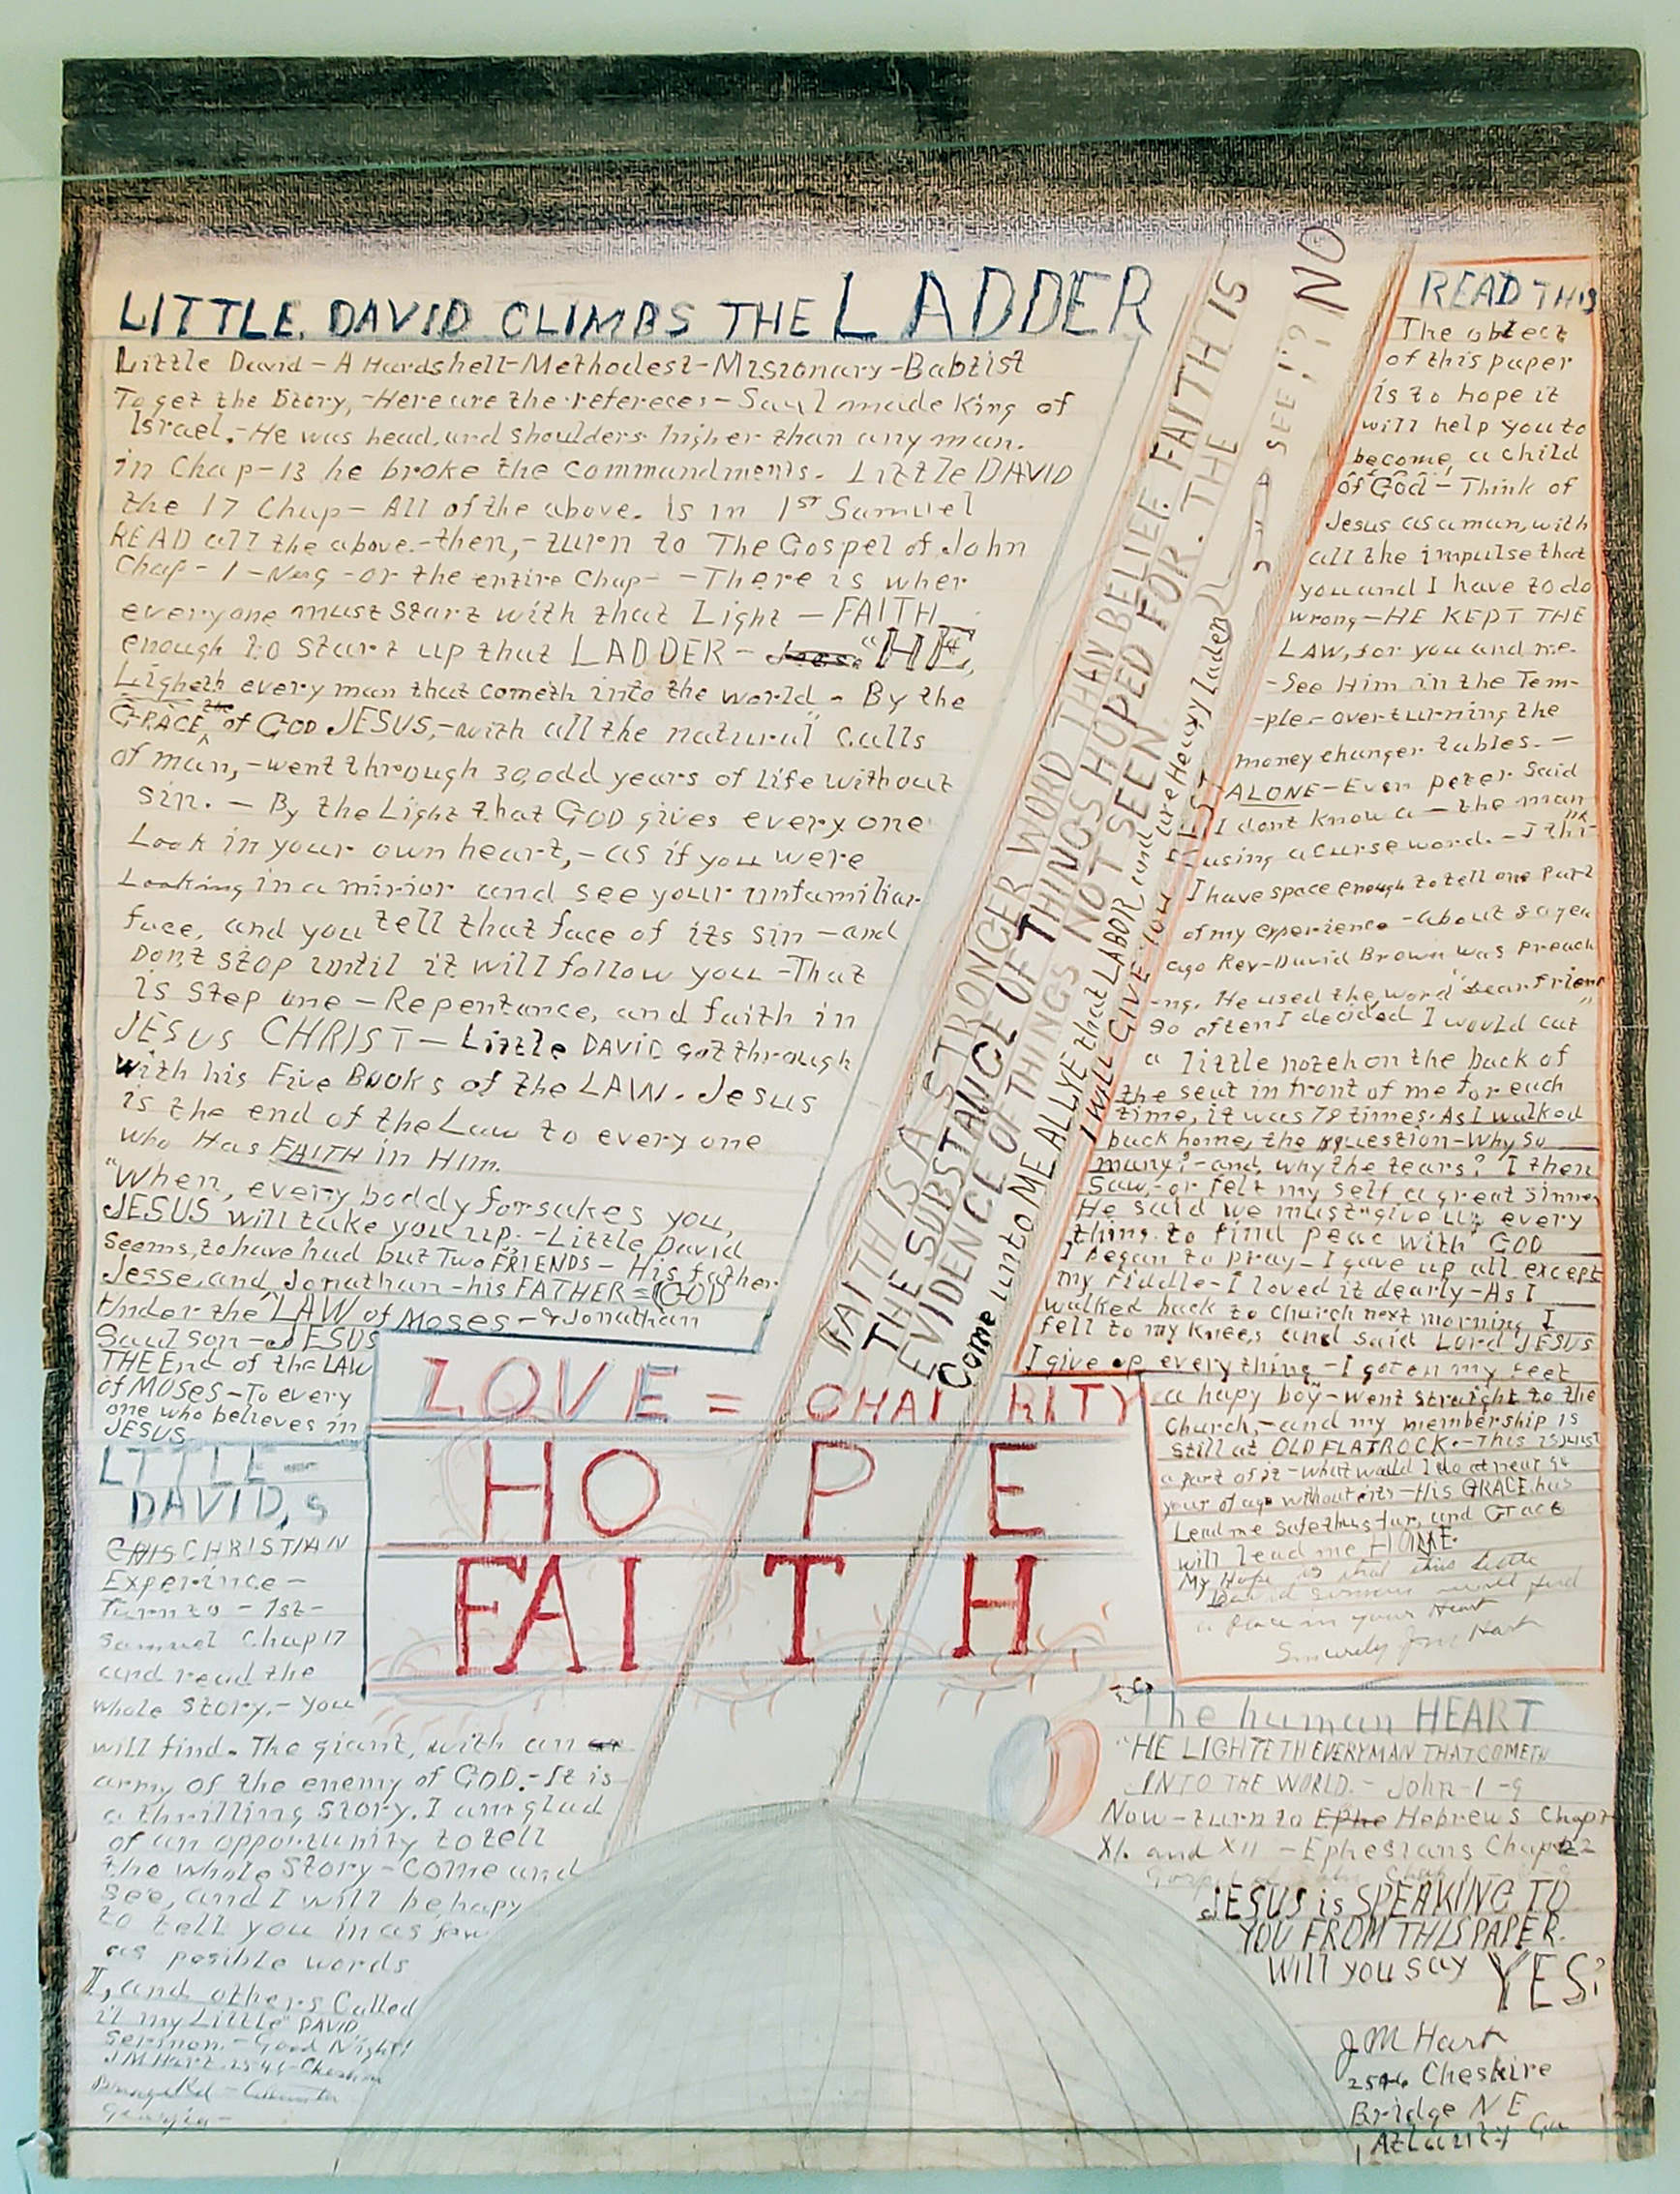 LITTLE DAVID CLIMBS THE LADDER
Little David - A Hardshell-Methodest-Misionary-Babtist
To get the Story, - Here are the refereces - Saul made King of
Israel. - He was head, and shoulders higher than any man.
in Chap-13 he broke the commandments. Little DAVID
the 17 Chap - All of the above. is in 1st Samuel
READ all the above. - then, - turn to The Gospel of John
Chap - 1 - - or the entire Chap - - There is wher
everyone must start with that Light - FAITH
enough to start up that LADDER - "HE",
Ligheth every man that cometh into the world - By the
GRACE, the of GOD JESUS, - with all the natural" calls
of man, - went through 30, odd years of life without
sin. - By the Light that GOD gives every one
Look in your own heart, - as if you were
Looking in a mirior and see your unfamiliar
face, and you tell that face of its sin - and
Dont stop until it will follow you - That
is step one - Repentance, and faith in
JESUS CHRIST - Little DAVID got through
with his Five BOOKS of the LAW. Jesus
is the end of the Law to every one
who Has FAITH in Him.
"When, every boddy forsakes you,
JESUS will take you up. - Little David
seems, to have had but Two FRIENDS - His father
Jesse, and Jonathan - his FATHER = GOD
Under the LAW of Moses - & Jonathan
Saul son - JESUS
THE End of the LAW
of MOSes - To every
one who believes in
JESUS
LTTLE -
DAVID,s
CHRISTIAN
Experince -
Turn to - 1st -
Samuel Chap 17
and read the
whole story, - you
will find. The giant, with an
army of the enemy of GOD. - It is
a thrilling story. I am glad
of an opportunity to tell
the whole Story - Come and
see, and I will be hapy
to tell you in as few
as posible words
I, and others Called
it my Little DAVID
sermon - Good Night!
J M Hart 2546 Cheshire
Bridge Rd -
Georgia -
FAITH IS A STRONGER WORD THAN BELIEF. FAITH IS
THE SUBSTANCE OF THINGS HOPED FOR. THE
EVIDENCE OF THINGS NOT SEEN SEE I? NO
Come unto ME ALL YE that LABOR and are Heavy laden
I WILL GIVE YOU REST
LOVE = CHAI RITY
HOPE
FAITH
READ THIS
The obtect
of this paper
is to hope it
will help you to
become, a child
of God - Think of
Jesus as a man, with
all the impulse that
you and I have to do
wrong - HE KEPT THE
LAW, for you and me.
- See Him in the Tem-
-ple - over turning the
money changer tables. -
ALONE - Even Peter Said
I dont know a - the man"
using a curse word. - I thi-
I have space enough to tell one Part
of my experience - about
ago Rev - David Brown was Preach
-ng. He used the word "Dear Frien
so often I decided I would cut
a little notch on the back of
the seat in front of me for each
time, it was 78 times. As I walked
back home, the question - Why so
many? - and, why the tears? I then
Saw, - or felt my self a great sinner
He said we must "give up every
thing to find peac with GOD
I began to pray - I gave up all except
my Fiddle - I loved it dearly - As I
walked back to church next morning I
fell to my knees and said Lord JESUS
I give up every thing - I got on my feet
a hapy boy - went straight to the
Church, - and my membership is
still at OLD FLATROCK. - This is just
a part of it - what would I do at near 94
your of age without - His GRACE has
Lead me safe thus far, and Grace
will lead me HOME.
My Hope is that this Little
David sermon will find
a Place in your Heart
Sincerely J M Hart
The human HEART
"HE LIGHTETH EVERYMAN THAT COMETH
INTO THE WORLD. - John - 1 - 9
Now - turn to Hebrews Chapt
XI. and XII - Ephesians Chap 2
JESUS is SPEAKING TO
YOU FROM THIS PAPER.
Will you say YES?
J M Hart
2546 Cheshire
Bridge N E
Atlanty Ga